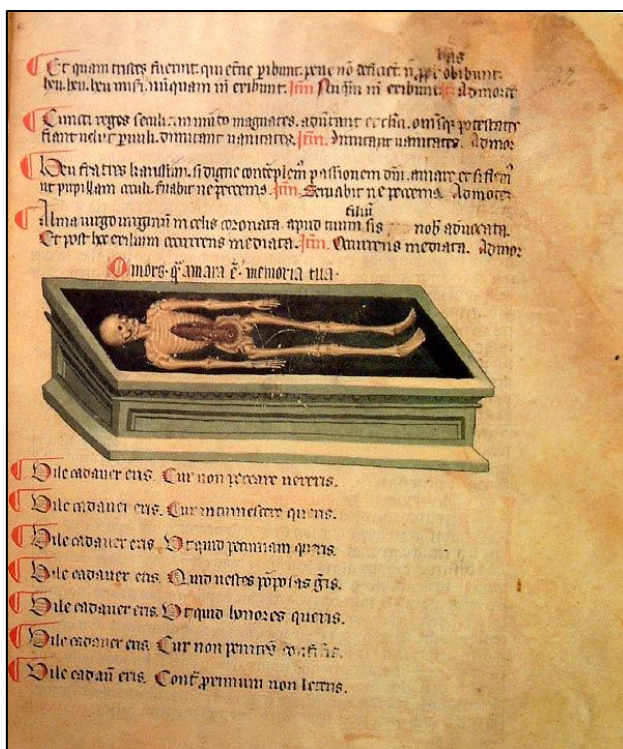 Et quam tristes fuerint qui etne peribunt. pene nō deficiet
heu. heu. heu miseri. nūquam in eribunt. Itm Nūquā in eribunt. Ad mortē
Cuncti reges seculi magnates. adūtant et clici. omisq; potestates
fiant velut puuli. dimittant uanitates. Itm. Dimittant uanitates. Ad mor
Heu fratres karissimi. si digne contēplem passionem dnī. amare et si flem
ut pupillam occuli. suabit ne peccemꝰ. Itm. Seruabit ne peccemꝰ. Ad morte
filiū
Alma uirgo uirginū in celis coronata. apud tuum sis nob aduocata.
Et post hoc exilium occurrens mediata. Itm. Occurrens mediata. Ad mor
O mors. q̄ amara ē. memoria tua.
Vile cadauer eris. Cur non peccare uereris.
Vile cadauer eris. Cur intumescere queris.
Vile cadauer eris. Vt quid peccuniam queris.
Vile cadauer eris. Quid uestes pōposas gīs.
Vile cadauer eris. Vt quid honores queris.
Vile cadauer eris. Cur non penitēs
Vile cadaū eris. Contᵃ proximum non leteris.